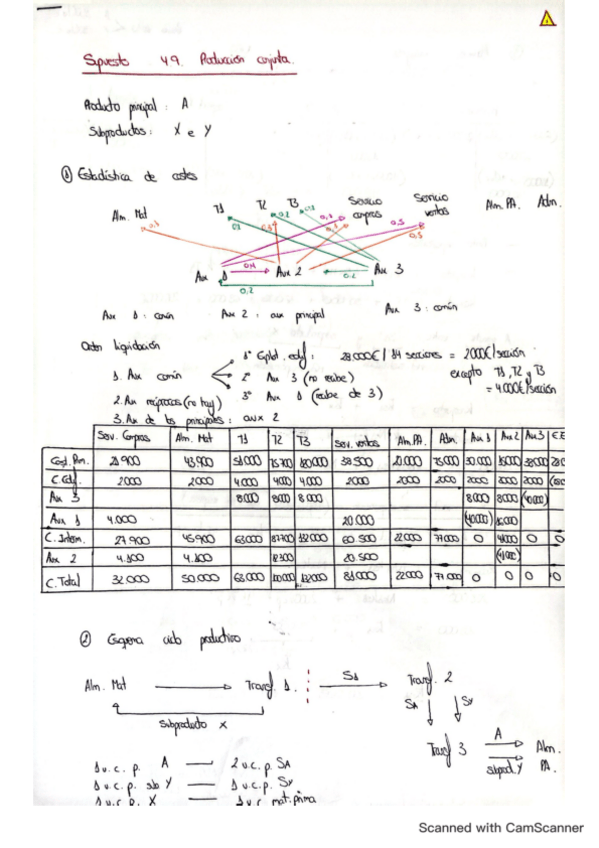 Supuesto 49. Producción conjunta.
Producto principal: A
Subproductos: X e Y
① Estadística de costes
Alm. Mat T1 T2 T3 Servicio compras Servicio ventas Alm. P.A. Adm.
0,1 0,2 0,2 0,2 0,1 0,5 0,5
0,4 0.2
Aux 1 Aux 2 Aux 3
0,2
Aux 1: común Aux 2: aux principal Aux 3: común
Orden liquidación
1º Gptal. edif: 28.000€ / 14 secciones = 2000€/sección
1. Aux común 2º Aux 3 (no recibe) excepto T1, T2 y T3
3º Aux 1 (recibe de 3) = 4.000€/sección
2. Aux recíprocas (no hay)
3. Aux de los principales: aux 2
Serv. Compras Alm. Mat T1 T2 T3 Serv. ventas Alm. P.A. Adm. Aux 1 Aux 2 Aux 3
21.900 43.900 51000 75700 38.500 20.000 75000 30000
C. Edf. 2000 2000 4.000 4.000 4.000 2000 2000 2000 2000 2000
Aux 3 8000 8000 8.000 8000 8.000 (40000)
Aux 1 4.000 20.000 (40000)
C. Interm. 27.900 45.900 63000 87700 132000 60.500 22000 77000 0 41000 0 0
Aux 2 4.100 4.100 12300 20.500 (41000)
C. Total 32.000 50.000 63.000 100000 132000 81000 22000 77000 0 0 0
② Esquema ciclo productivo
Alm. Mat Transf. 1. S1 Transf. 2
Subproducto X
SA SY
Transf 3 A Alm. P.A.
Subprod. Y
1 u.c.p. A — 2 u.c.p. SA
1 u.c.p. sub Y — 1 u.c.p. SY
1 u.c.p. X — 1 u.c mat. prima
Scanned with CamScanner